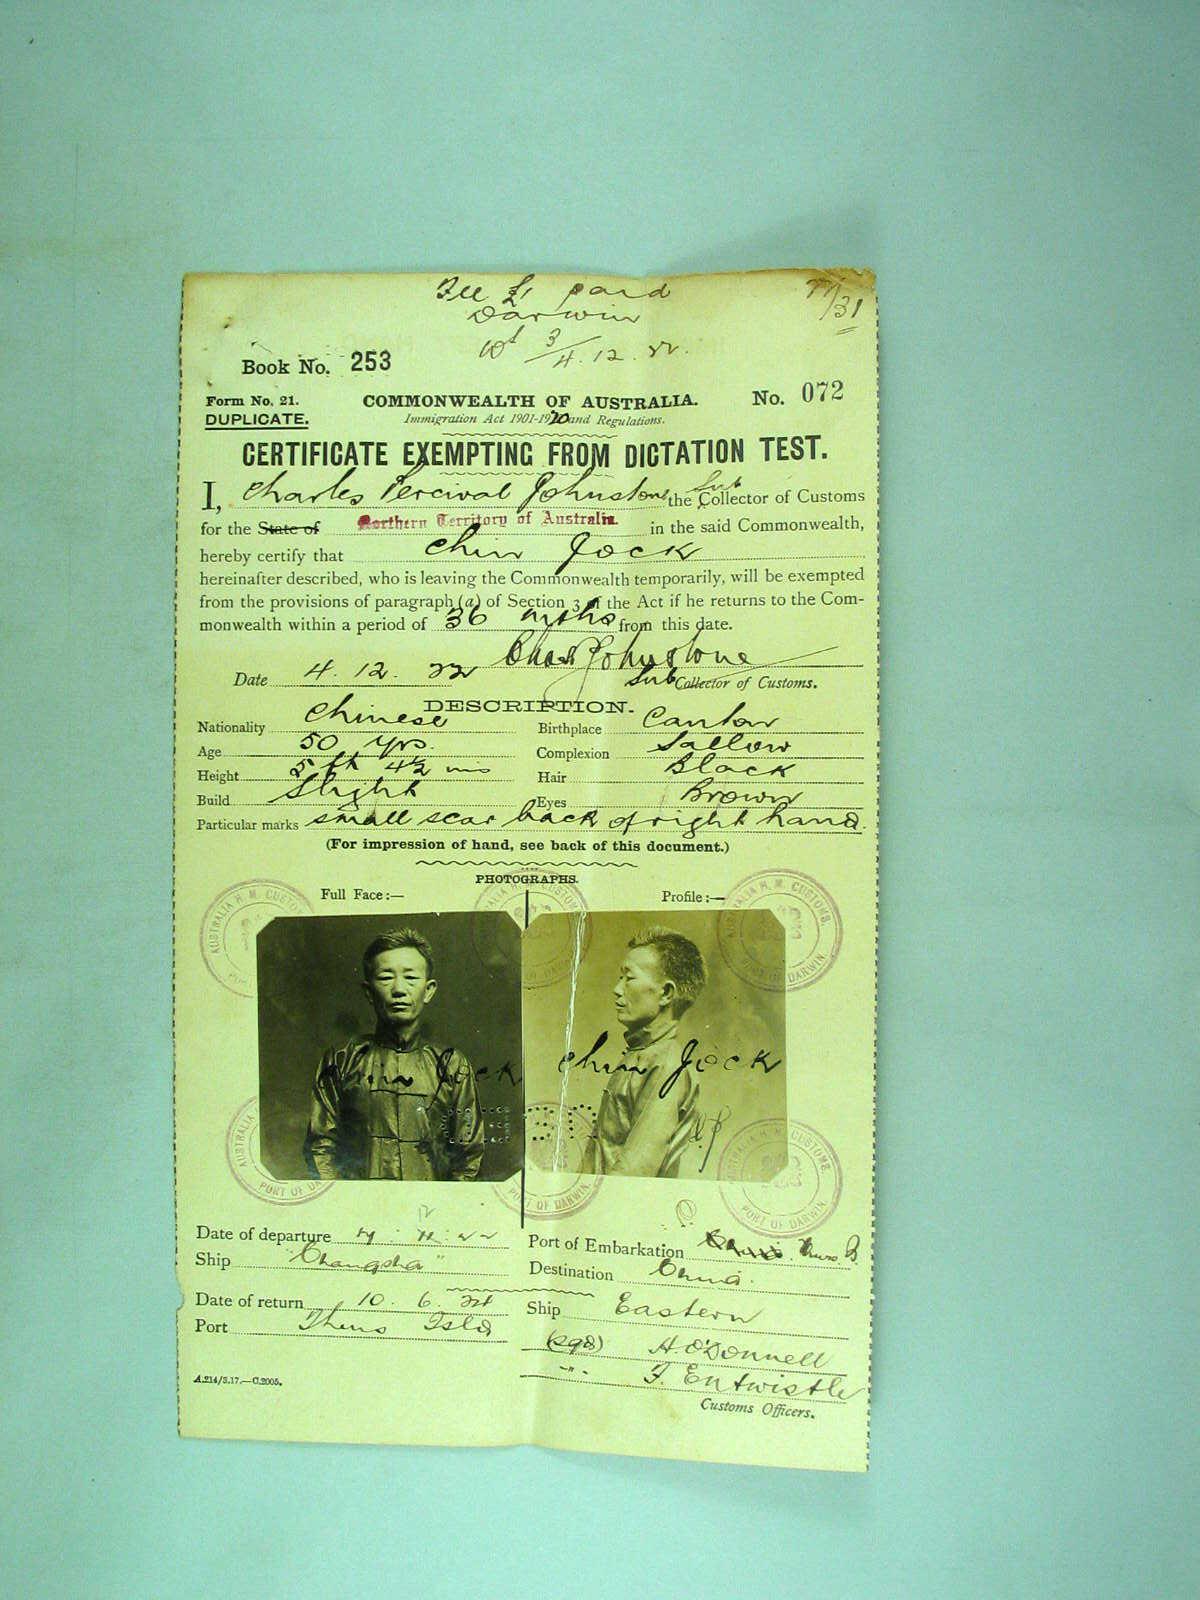 Fee £1 paid
Darwin
3/4.12.22.
/31
Book No. 253
Form No. 21.
COMMONWEALTH OF AUSTRALIA.
No. 072
DUPLICATE.
Immigration Act 1901-1920 and Regulations.
CERTIFICATE EXEMPTING FROM DICTATION TEST.
I, Charles Percival Johnstone the Sub Collector of Customs
for the State of Northern Territory of Australia. in the said Commonwealth,
hereby certify that Chin Jock
hereinafter described, who is leaving the Commonwealth temporarily, will be exempted
from the provisions of paragraph (a) of Section 3 of the Act if he returns to the Com-
monwealth within a period of 36 mths from this date.
Chas Johnstone
Date 4.12.22
Sub Collector of Customs.
DESCRIPTION.
Nationality Chinese
Birthplace Canton
Age 50 yrs.
Complexion Sallow
Height 5 ft 4½ ins
Hair Black
Build Slight
Eyes Brown
Particular marks small scar back of right hand.
(For impression of hand, see back of this document.)
PHOTOGRAPHS.
Full Face:—
Profile:—
AUSTRALIA H. M. CUSTOMS.
PORT OF DARWIN.
Chin Jock
Chin Jock
Date of departure
Port of Embarkation
Ship "Changsha"
Destination China.
Date of return 10.6.24
Ship Eastern
Port Thurs Isld
(sgd) H. O'Donnell
" F. Entwistle
Customs Officers.
A.214/3.17.—C.2005.